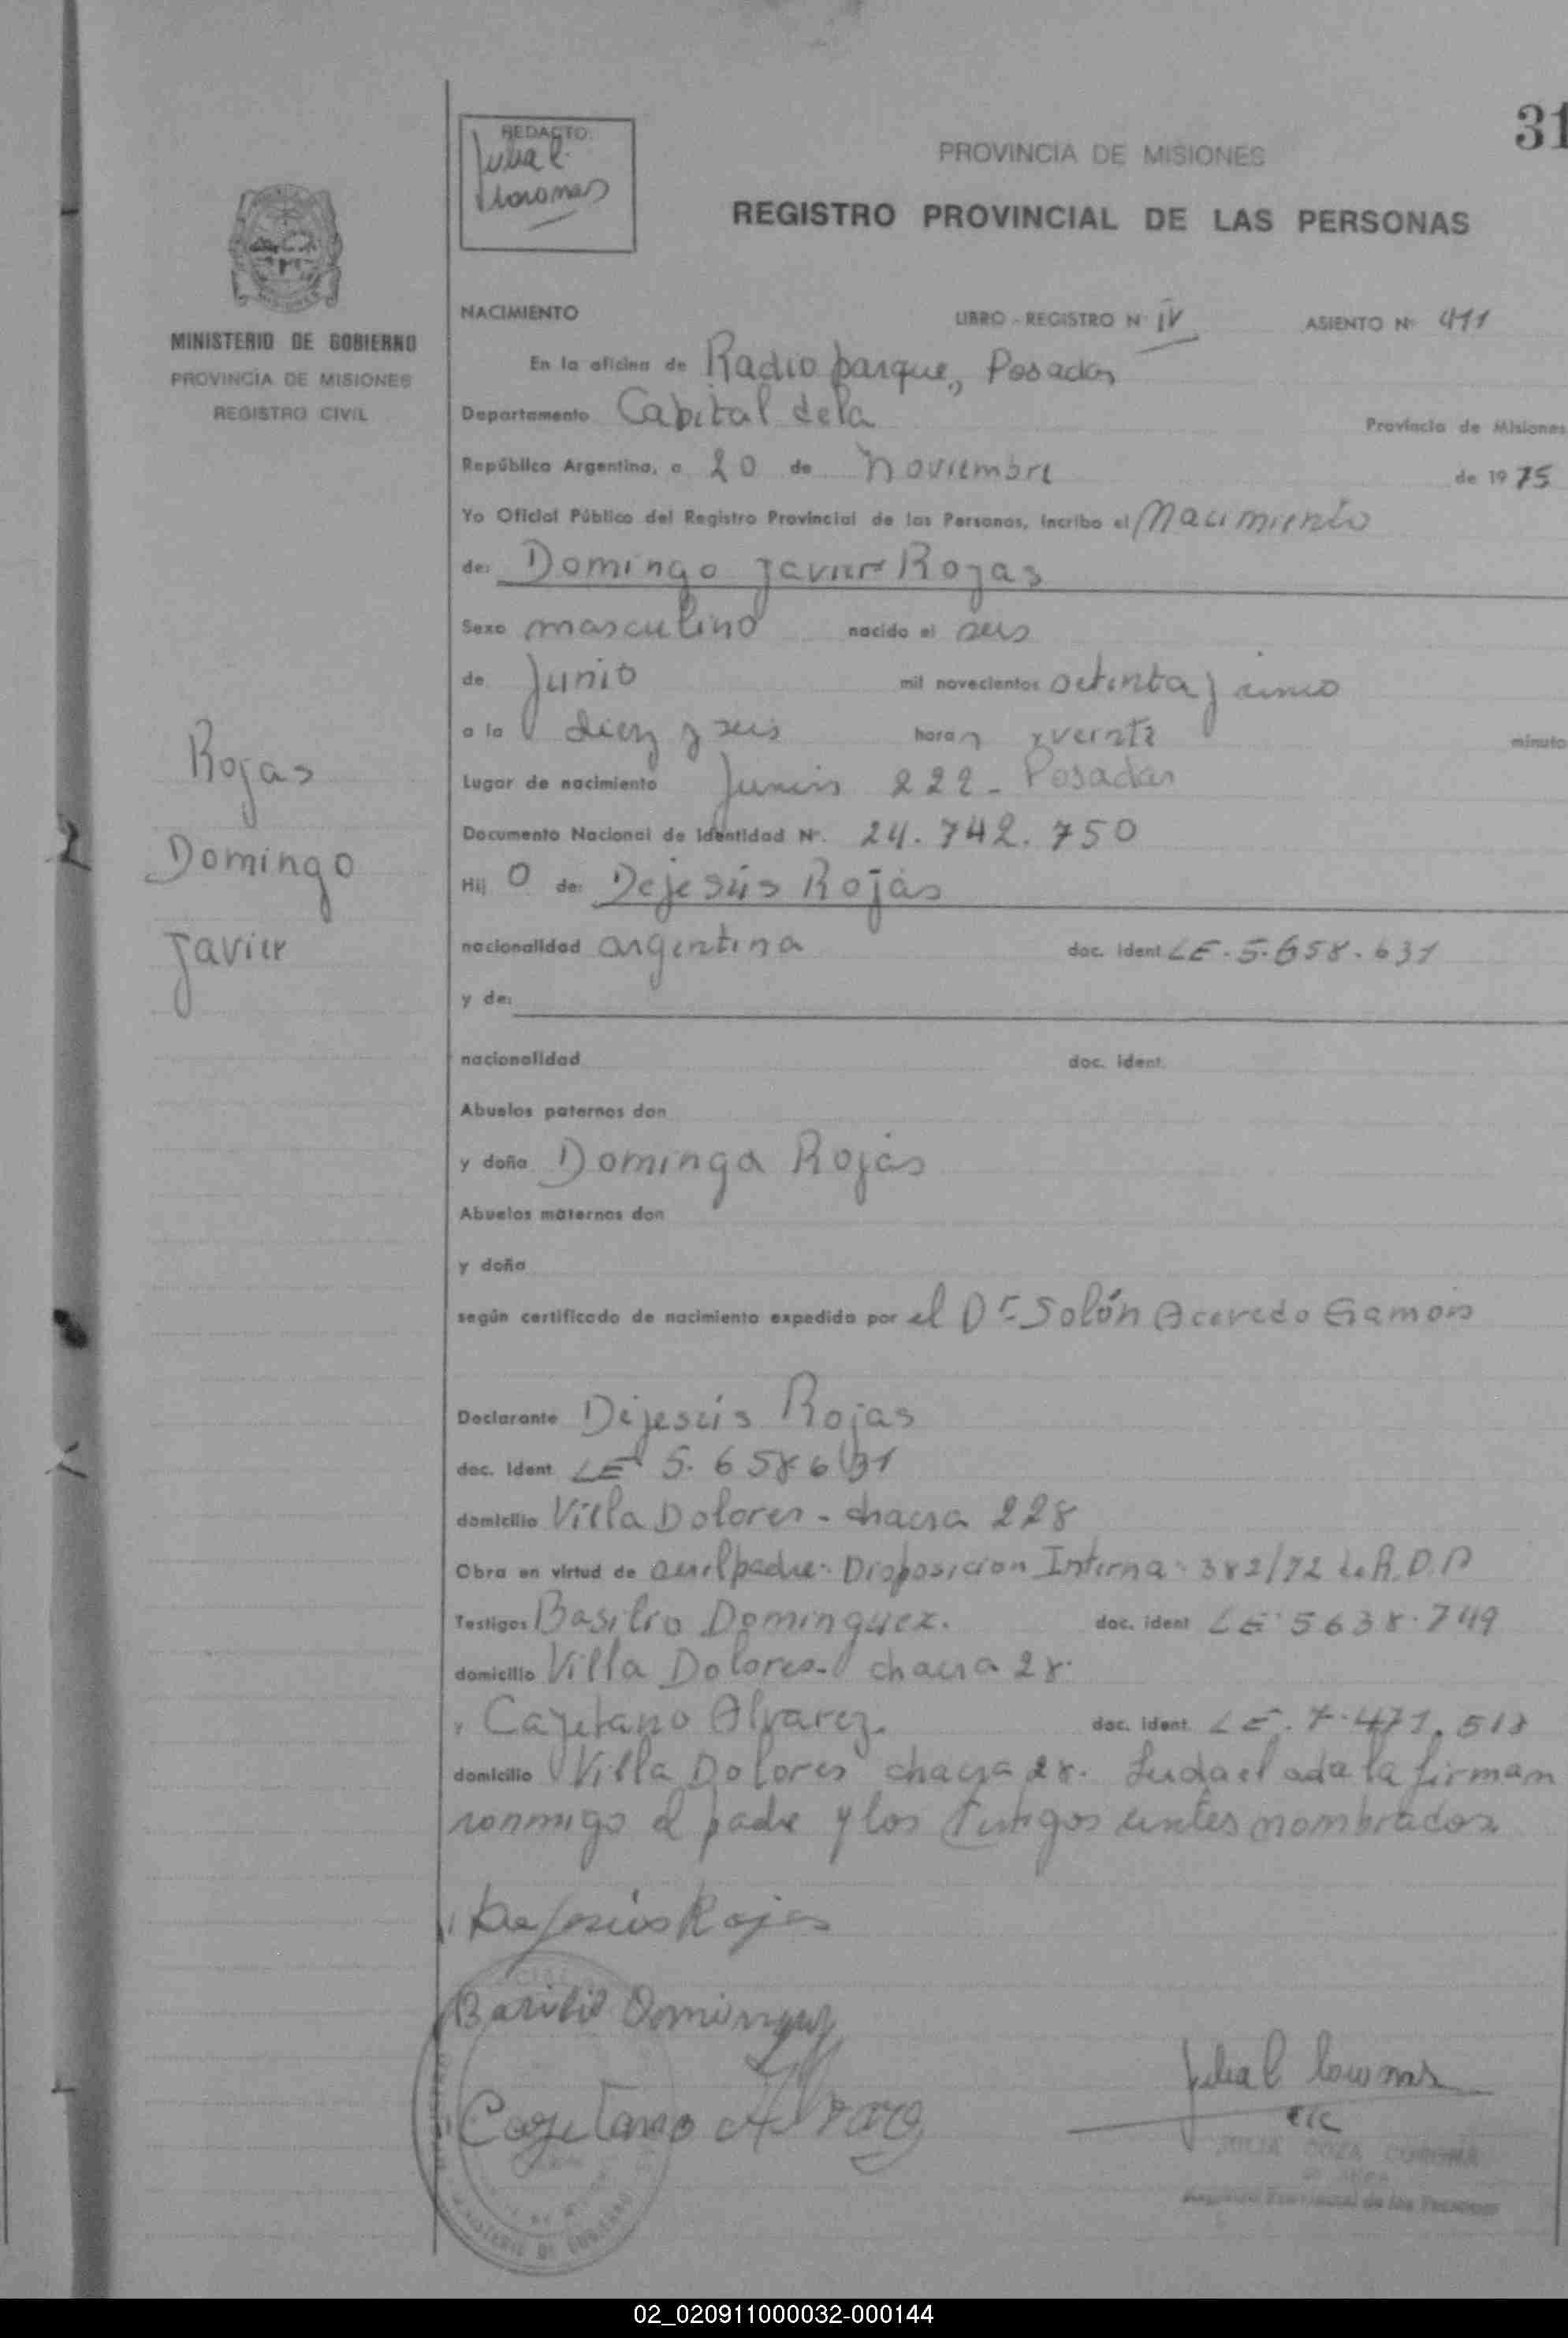 31
REDACTO:
Julia C.
Coronas
PROVINCIA DE MISIONES
REGISTRO PROVINCIAL DE LAS PERSONAS
MINISTERIO DE GOBIERNO
PROVINCIA DE MISIONES
REGISTRO CIVIL
NACIMIENTO LIBRO - REGISTRO Nº IV ASIENTO Nº 411
En la oficina de Radio parque, Posadas
Departamento Capital de la Provincia de Misiones
República Argentina, a 20 de Noviembre de 1975
Yo Oficial Público del Registro Provincial de las Personas, incribo el Nacimiento
de: Domingo Javier Rojas
Sexo masculino nacido el seis
de Junio mil novecientos setenta y cinco
a la diez y seis horas y veinte minuto
Rojas
Domingo
Javier
Lugar de nacimiento Junin 222 - Posadas
Documento Nacional de Identidad Nº. 24.742.750
Hij o de: Dejesús Rojas
nacionalidad argentina doc. ident LE. 5.658.631
y de:
nacionalidad doc. ident.
Abuelos paternos don
y doña Dominga Rojas
Abuelos maternos don
y doña
según certificado de nacimiento expedido por el Dr. Solón Acevedo Gamon
Declarante Dejesús Rojas
doc. ident LE 5.658631
domicilio Villa Dolores - chacra 228
Obra en virtud de ser el padre. Disposicion Interna 382/72 de R.D.P
Testigos Basilio Dominguez. doc. ident LE 5638.749
domicilio Villa Dolores - chacra 28.
y Cayetano Alvarez. doc. ident. LE. 7.471.518
domicilio Villa Dolores chacra 28. Leida el acta la firman
conmigo el padre y los testigos antes nombrados
Dejesús Rojas
Basilio Dominguez
Cayetano Alvarez
Julia C Coronas
JULIA COZA CORONA
Registro Provincial de las Personas
MINISTERIO DE GOBIERNO
02_020911000032-000144